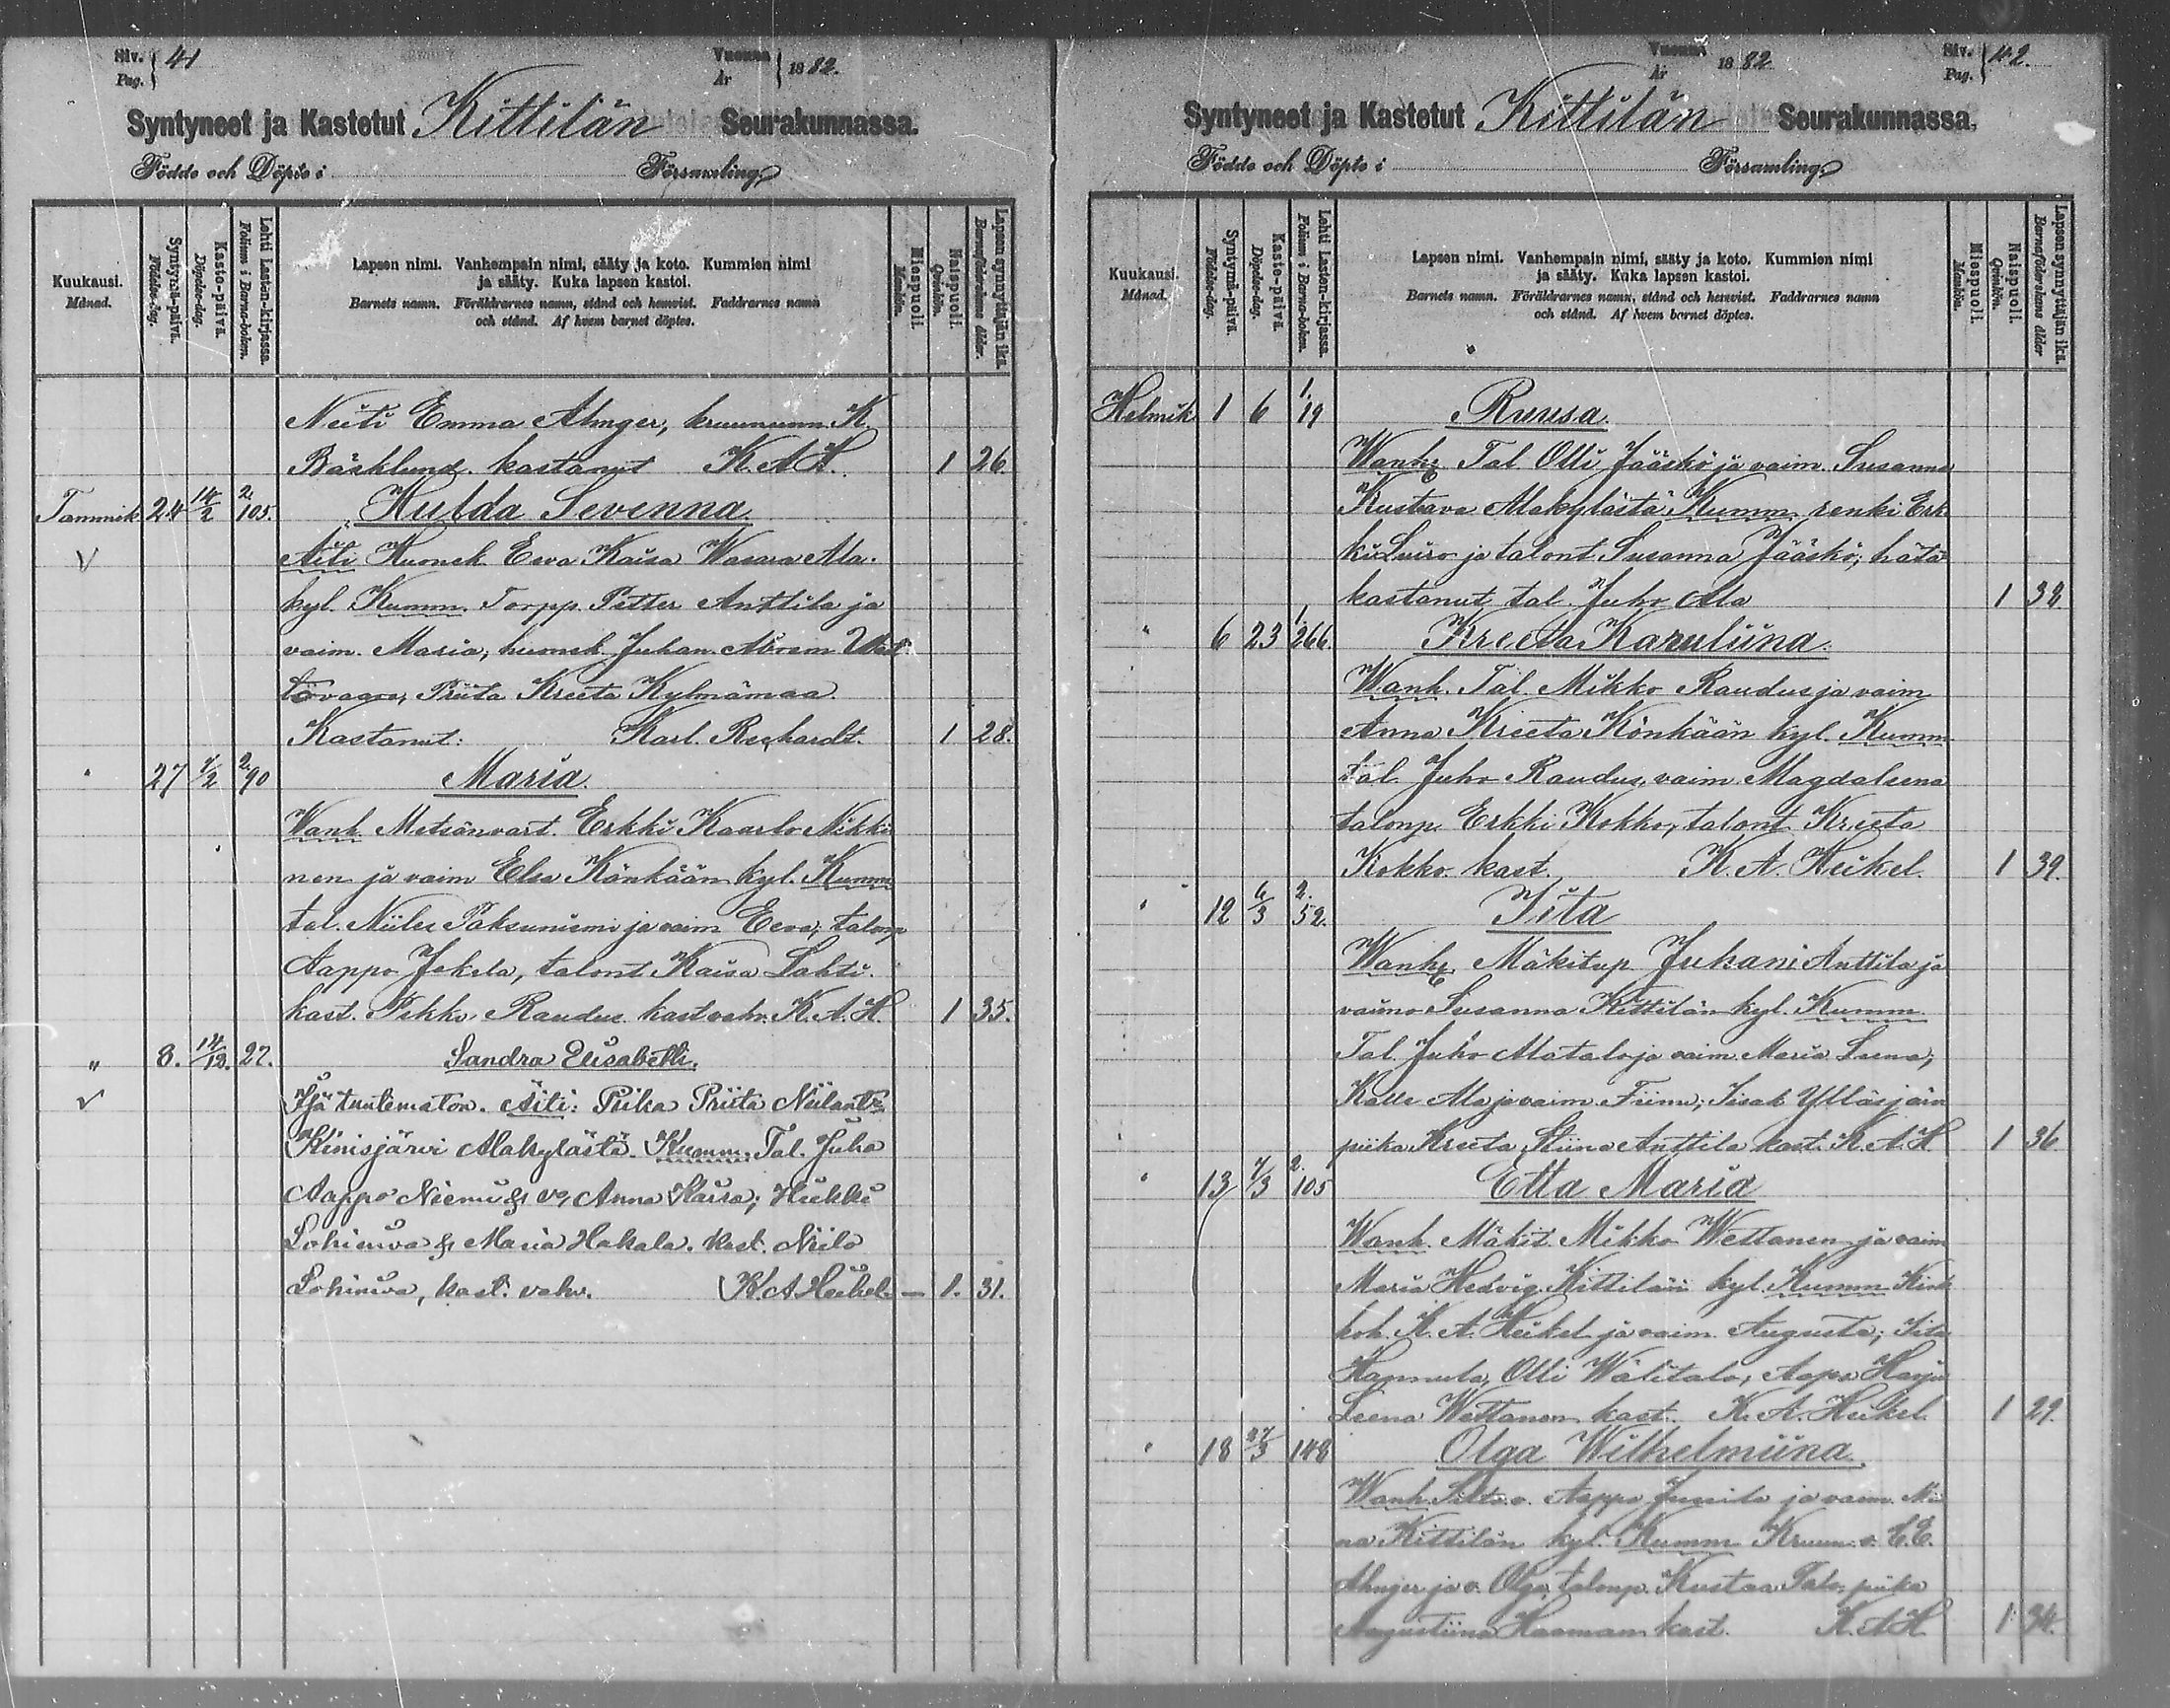 Siv. 41
Pag.
Vuonna 1882.
År
Syntyneet ja Kastetut Kittilän Seurakunnassa.
Födde och Döpte i Församling
Kuukausi.
Månad.
Syntymä-päivä.
Födelse-dag.
Kaste-päivä.
Döpelse-dag.
Lehti Lasten-kirjassa.
Folium i Barna-boken.
Lapsen nimi. Vanhempain nimi, sääty ja koto. Kummien nimi
ja sääty. Kuka lapsen kastoi.
Barnets namn. Föräldrarnes namn, stånd och hemvist. Faddrarnes namn
och stånd. Af hvem barnet döptes.
Miespuoli.
Mankön.
Naispuoli.
Qvinkön.
Lapsen synnyttäjän ikä.
Barnaföderskans ålder.
Neiti Emma Ahnger, kruunun K.
Bäcklund. kastanut K. A. H. 1 26
Tammik 24 14/2 2. 105. Hulda Sevenna
V Äiti Huonek. Eeva Kaisa Wasara Ala-
kyl. Kumm. Torpp. Petter Anttila ja
vaim. Maria, huonek. Juhan Abram
Priita Kreeta Kylmämaa
Kastanut: Karl. 1 28.
" 27 7/2 2. 90 Maria.
Wanh. Metsänvart. Erkki Kaarlo Nikki
nen ja vaim Elsa Könkään kyl. Kumm
tal. Niiles Paksuniemi ja vaim Eeva, talonp
Aappo Jokela, talont Kaisa Lahti.
kast. Pekka Raudus kast vahv. K. A. H. 1 35.
" 8. 14/12. 27. Sandra Elisabetti.
V Isä tuntematon. Äiti: Piika Priita Niilantr.
Kinisjärvi Alakylästä. Kumm. Tal. Juho
Aappo Niemi & vo, Anna Kaisa; Heikki
Lohiniva & Maria Hakala. kast. Niilo
Lohiniva, kast. vahv. K. A. Heikel. — 1. 31.
Vuonna 1882
År
Siv. 42.
Pag.
Syntyneet ja Kastetut Kittilän Seurakunnassa.
Födde och Döpte i Församling
Kuukausi.
Månad.
Syntymä-päivä.
Födelse-dag.
Kaste-päivä.
Döpelse-dag.
Lehti Lasten-kirjassa.
Folium i Barna-boken.
Lapsen nimi. Vanhempain nimi, sääty ja koto. Kummien nimi
ja sääty. Kuka lapsen kastoi.
Barnets namn. Föräldrarnes namn, stånd och hemvist. Faddrarnes namn
och stånd. Af hvem barnet döptes.
Miespuoli.
Mankön.
Naispuoli.
Qvinkön.
Lapsen synnyttäjän ikä.
Barnaföderskans ålder
Helmik 1 6 1. 19 Ruusa.
Wanh. Tal Olli Jääskö ja vaim. Susanna
Kustava Alakylästä Kumm renki Erk
ki Luiro ja talont Susanna Jääskö; hätä
kastanut tal. Juho Ala 1 38.
" 6 23 1. 266. Kreeta Karuliina.
Wanh. Tal. Mikko Raudus ja vaim
Anna Kreeta Könkään kyl. Kumm
Tal. Juho Raudus, vaim Magdaleena
talonp. Erkki Kokko, talont Kreeta
Kokko kast. K. A. Heikel. 1 39.
" 12 6/3 2. 52. Iita
Wanh. Mäkitup Juhani Anttila ja
vaimo Susanna Kittilän kyl. Kumm
Tal. Juho Alatalo ja vaim. Maria Leena,
Kalle Ala ja vaim. Fiina; Iisak Ylläsjärv
piika Kreeta Stiina Anttila kast. K. A. H 1 36
" 13 7/3 2. 105 Etta Maria
Wanh. Mäkit. Mikko Wettanen ja vaim
Maria Hedvig. Kittilän kyl. Kumm Kirk
koh. K. A. Heikel ja vaim. Augusta; Iita
Hannula, Olli Wälitalo, Aapo Harju
Leena Wettanen kast. K. A. Heikel. 1 29.
" 18 27/3 148 Olga Wilhelmiina.
Wanh. Aappo Junila ja vaim. Mii
na Kittilän kyl. Kumm Kruun. v. E. E.
Ahnger ja v. Olga, talonp. Kustaa Talo, piika
Augustiina Haaman kast. K. A. H 1 34.